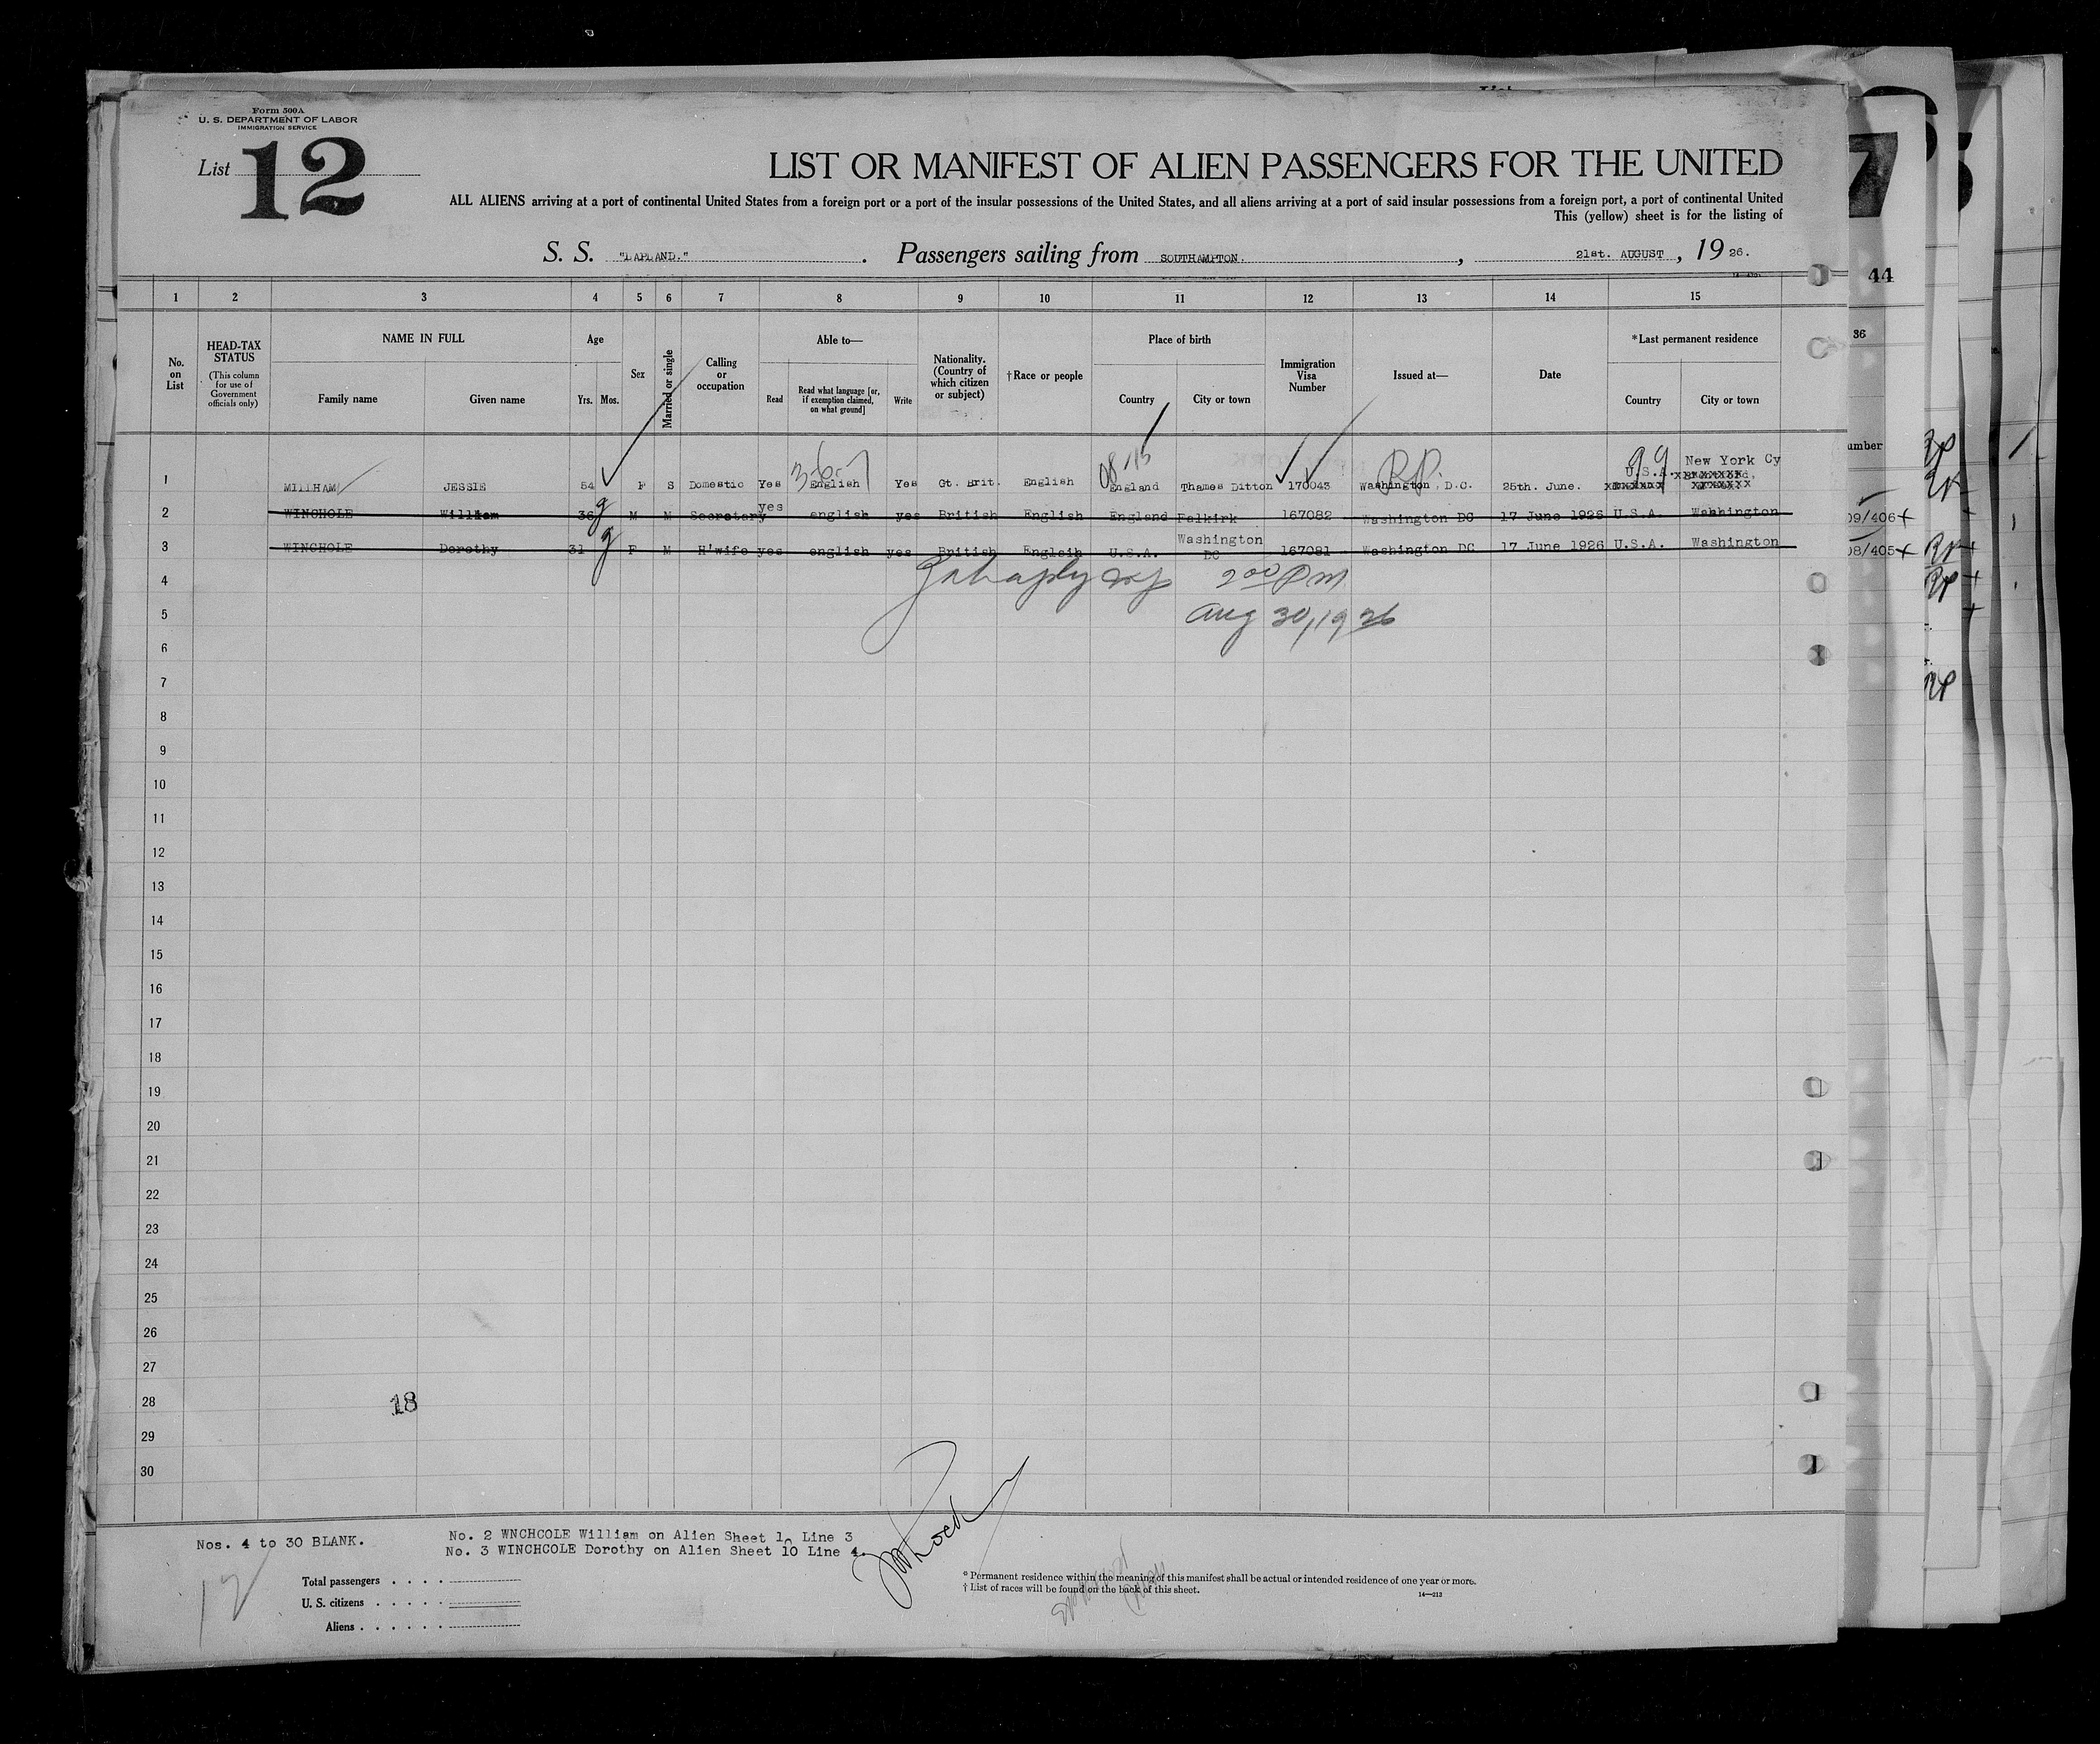 Form 500A
U. S. DEPARTMENT OF LABOR
IMMIGRATION SERVICE
List 12
LIST OR MANIFEST OF ALIEN PASSENGERS FOR THE UNITED
ALL ALIENS arriving at a port of continental United States from a foreign port or a port of the insular possessions of the United States, and all aliens arriving at a port of said insular possessions from a foreign port, a port of continental United
This (yellow) sheet is for the listing of
S. S. "LAPLAND." . Passengers sailing from SOUTHAMPTON. , 21st. AUGUST , 19 26.
1 2 3 4 5 6 7 8 9 10 11 12 13 14 15
No. on List
HEAD-TAX STATUS (This column for use of Government officials only)
NAME IN FULL
Family name Given name
Age
Yrs. Mos.
Sex
Married or single
Calling or occupation
Able to—
Read Read what language [or, if exemption claimed, on what ground] Write
Nationality. (Country of which citizen or subject)
†Race or people
Place of birth
Country City or town
Immigration Visa Number
Issued at—
Date
*Last permanent residence
Country City or town
3-6-7 RP. 99 New York Cy
1 MILLHAM JESSIE 54 F S Domestic Yes English Yes Gt. Brit. English England Thames Ditton 170043 Washington, D.C. 25th. June. U.S.A.
2 WINCHOLE William 36 M M Secretary yes english yes British English England Falkirk 167082 Washington DC 17 June 1926 U.S.A. Washington
3 WINCHOLE Dorothy 31 F M H'wife yes english yes British Engleih U.S.A. Washington DC 167081 Washington DC 17 June 1926 U.S.A. Washington
4 2 00 PM
5 Aug 30, 1926
6
7
8
9
10
11
12
13
14
15
16
17
18
19
20
21
22
23
24
25
26
27
28 18
29
30
Nos. 4 to 30 BLANK.
No. 2 WNCHCOLE William on Alien Sheet 10 Line 3
No. 3 WINCHCOLE Dorothy on Alien Sheet 10 Line 4.
Total passengers . . . .
U. S. citizens . . . . .
Aliens . . . . . .
* Permanent residence within the meaning of this manifest shall be actual or intended residence of one year or more.
† List of races will be found on the back of this sheet.
14—213
12
7
44
36
umber
09/406+
08/405+